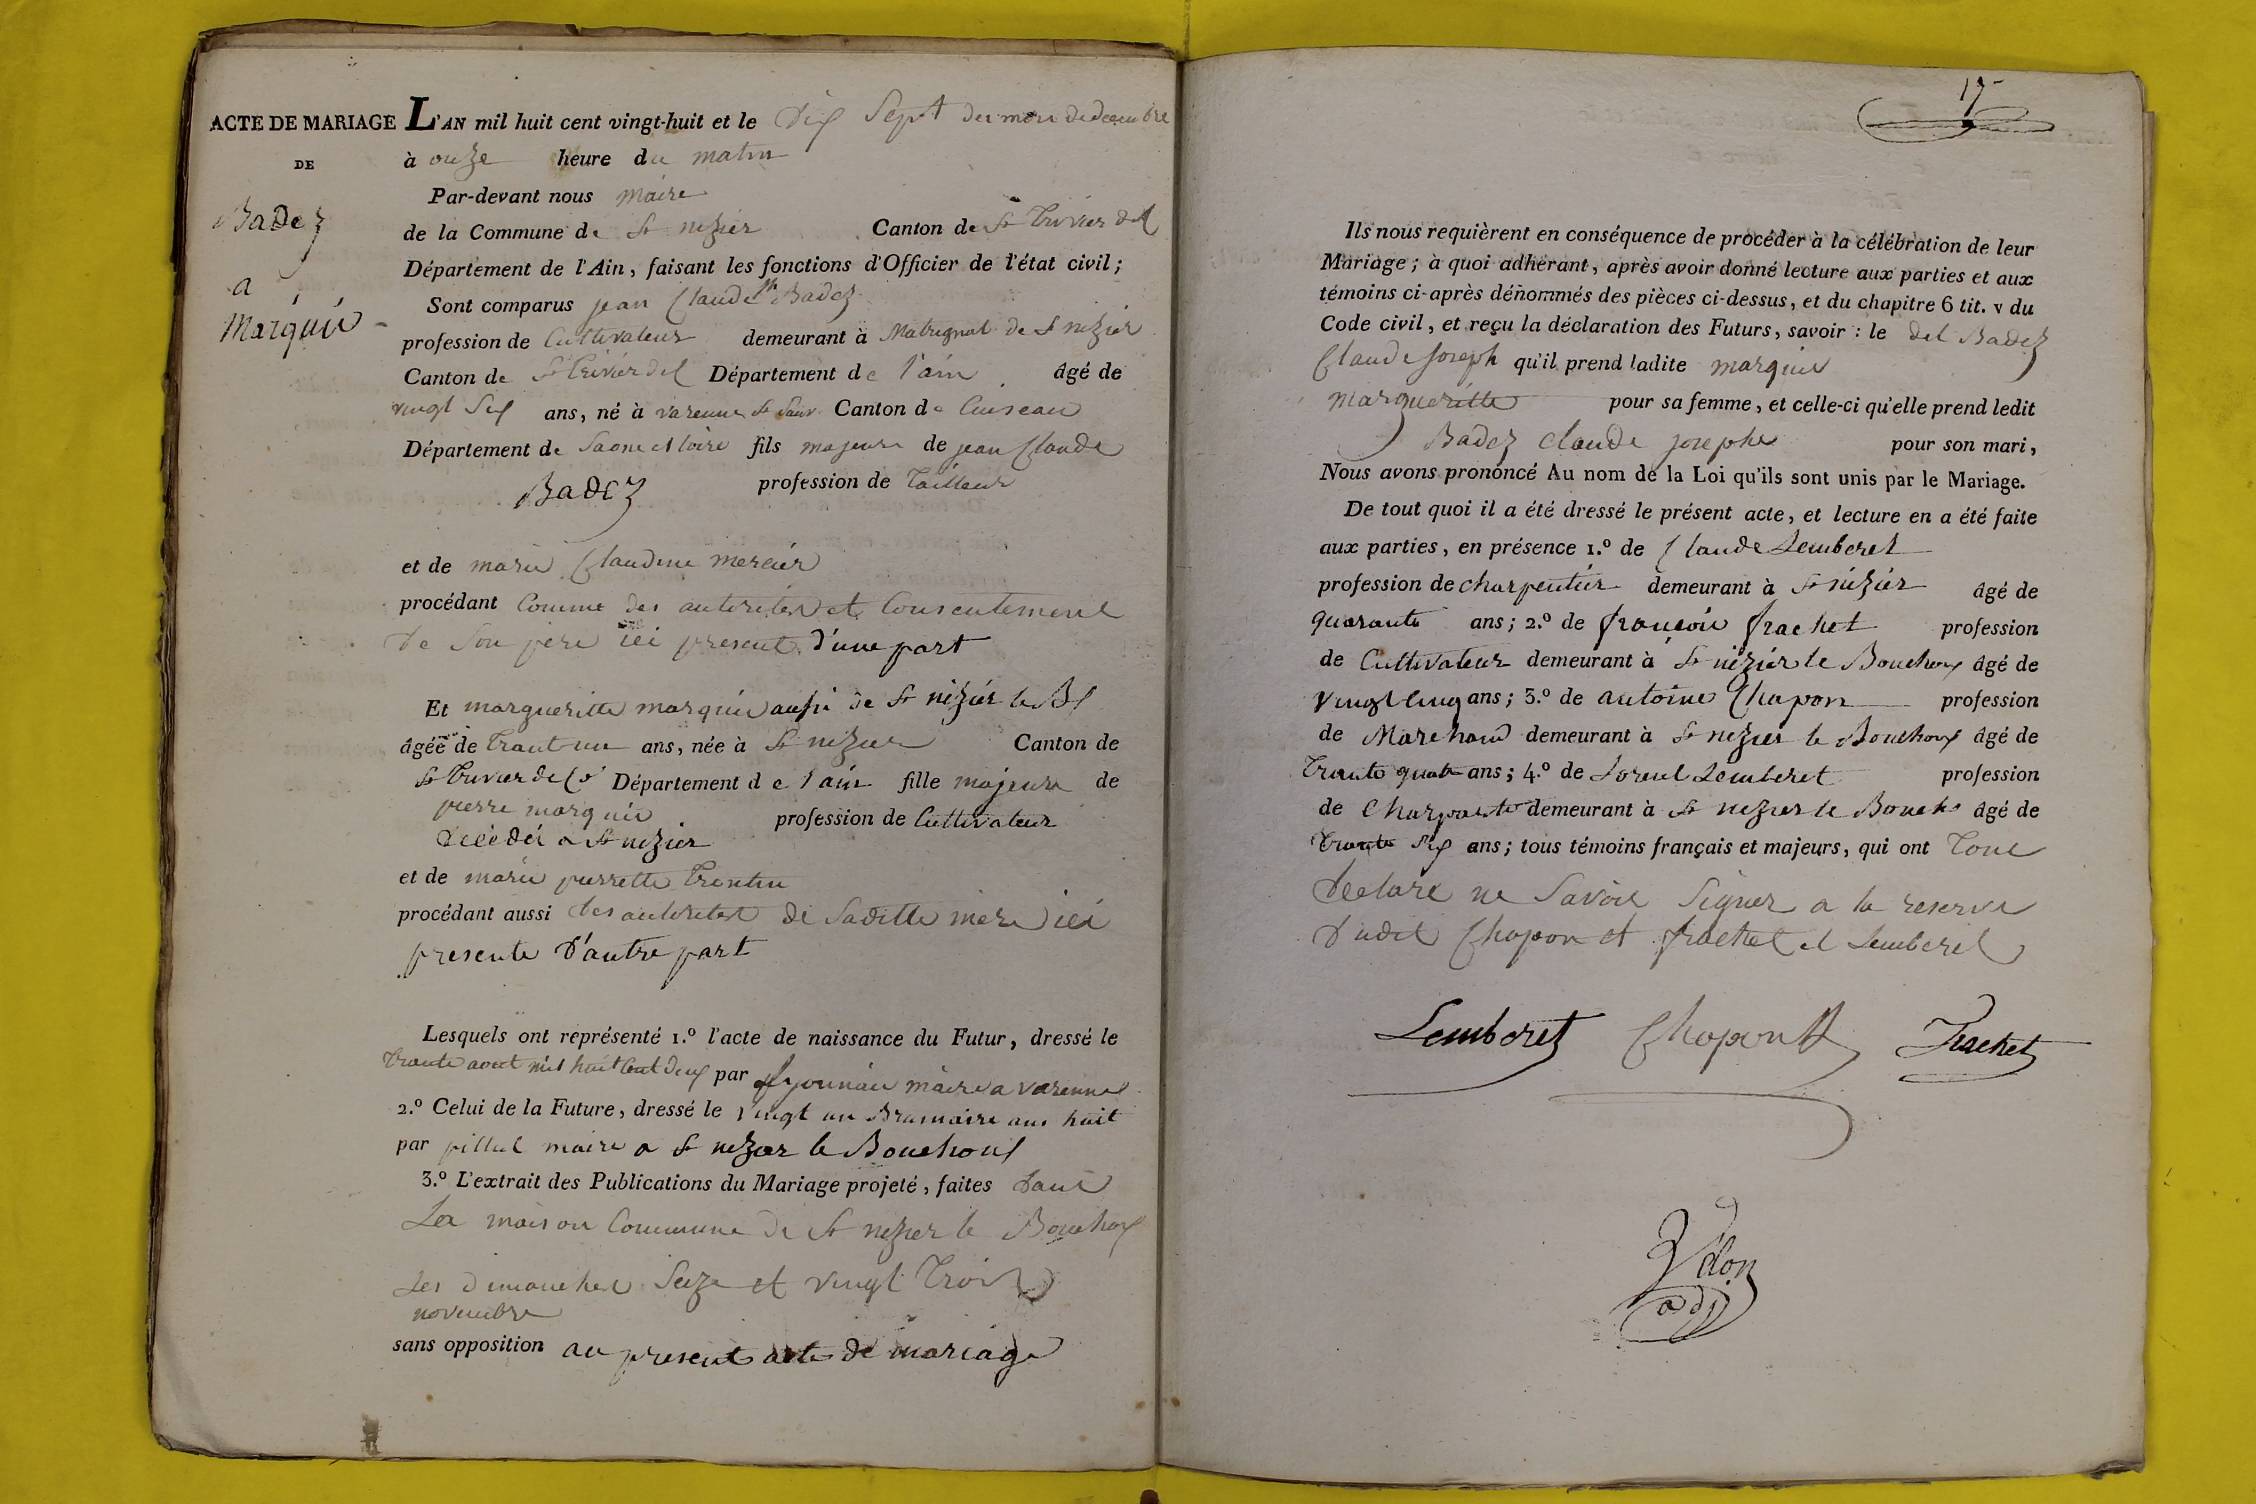 ACTE DE MARIAGE L'AN mil huit cent vingt-huit et le dix Sept du mois de decembre
DE
à onze heure du matin
Par-devant nous maire
Badez
de la Commune de St nizier Canton de St Trivier
Département de l'Ain, faisant les fonctions d'Officier de l'état civil;
a
Sont comparus jean Claude Badez
Marquis
profession de Cultivateur demeurant à Matrignat de St nizier
Canton de St Trivier Département de l'ain âgé de
vingt Six ans, né à varenne St Sauv Canton de Cuiseau
Département de Saone et loire fils majeure de jean Claude
Badez profession de Tailleur
et de marie Claudine mercier
procédant Comme des autorités et Consentement
de Son père ici present d'une part
Et margueritte marquis aussi de St nizier le B
âgée de Trant un ans, née à St nizier Canton de
St Trivier de Département de l'ain fille majeure de
pierre marquis profession de Cultivateur
décédé a St nizier
et de marie pierrette Trontin
procédant aussi des autorites de Saditte mere ici
presente d'autre part
Lesquels ont représenté 1.º l'acte de naissance du Futur, dressé le
Trante aout mil huit Cent deux par maire a varenne
2.º Celui de la Future, dressé le vingt un Brumaire ans huit
par maire a St nizier le Bouchoux
3.º L'extrait des Publications du Mariage projeté, faites dans
La maison Commune de St nizier le Bouchoux
Les dimanches Seize et vingt Trois
novembre
sans opposition au present acte de mariage
17
Ils nous requièrent en conséquence de procéder à la célébration de leur
Mariage; à quoi adhérant, après avoir donné lecture aux parties et aux
témoins ci-après dénommés des pièces ci-dessus, et du chapitre 6 tit. v du
Code civil, et reçu la déclaration des Futurs, savoir: le dit Badez
Claude Joseph qu'il prend ladite marquis
margueritte pour sa femme, et celle-ci qu'elle prend ledit
Badez claude josephe pour son mari,
Nous avons prononcé Au nom de la Loi qu'ils sont unis par le Mariage.
De tout quoi il a été dressé le présent acte, et lecture en a été faite
aux parties, en présence 1.º de Claude Lemberet
profession de charpentier demeurant à St nizier âgé de
quarante ans; 2.º de françois frachet profession
de Cultivateur demeurant à St nizier le Bouchoux âgé de
vingt Cinq ans; 3.º de antoine Chapon profession
de Marchand demeurant à St nizier le Bouchoux âgé de
Trante quatre ans; 4.º de Lorent Lemberet profession
de Charpante demeurant à St nizier le Bouch âgé de
Trante Six ans; tous témoins français et majeurs, qui ont Tous
declare ne Savoir Signer a la reserve
dudit Chapon et frachet et Lemberet
Lemberet Chapon Frachet
Ydon
adj